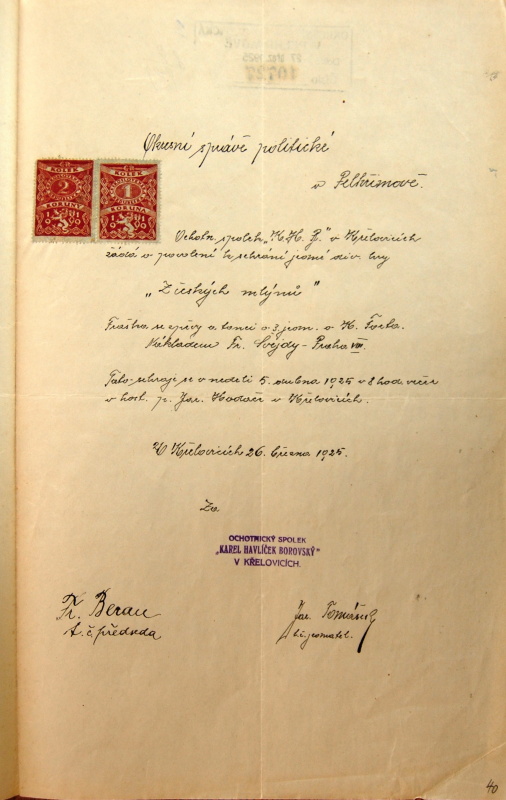 Okresní správě politické
v Pelhřimově.
KOLEK
2
KORUNY
1919
KOLEK
1
KORUNY
1919
Ochotn. spolek „K. H. B." v Křelovicích
žádá o povolení k sehrání jedné div. hry
„Z českých mlýnů"
Fraška se zpěvy a tanci o 3 jedn. o K. Fořta.
Nákladem Fr. Švejdy - Praha VIII.
Tato sehraje se v neděli 5. dubna 1925 v 8 hod. večer
v host. p. Jar. Hodače v Křelovicích.
V Křelovicích 26. března 1925.
Za
OCHOTNICKÝ SPOLEK
„KAREL HAVLÍČEK BOROVSKÝ"
V KŘELOVICÍCH.
Fr. Beran
t. č. předseda
Jar.
t. č. jednatel.
40